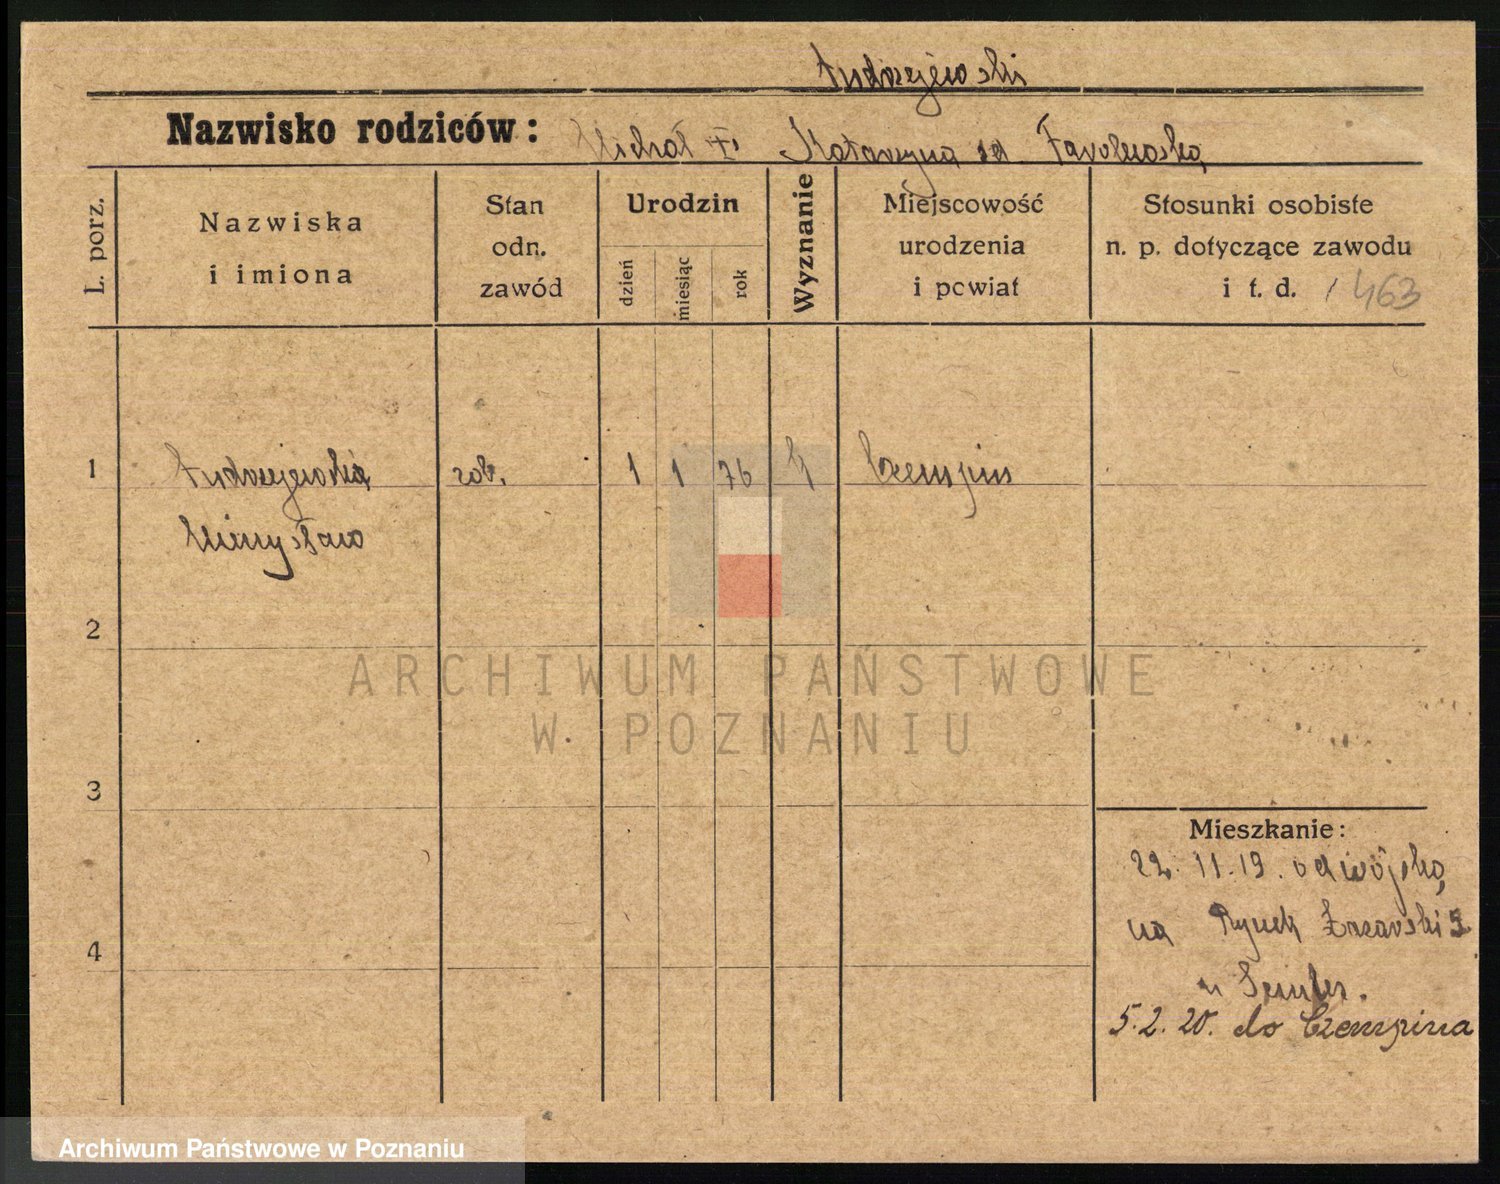 Andrzejewski
Nazwisko rodziców: Michał i Katarzyna zd.
L. porz.
Nazwiska
i imiona
Stan
odn.
zawód
Urodzin
dzień
miesiąc
rok
Wyznanie
Miejscowość
urodzenia
i powiat
Stosunki osobiste
n. p. dotyczące zawodu
i t. d. 463
1 Andrzejewska rob. 1 1 76 k Czempin
2
ARCHIWUM PAŃSTWOWE
W POZNANIU
3
Mieszkanie:
22. 11. 19. od wojska,
na Rynek Łazarski 5.
4
u
5. 2. 20. do Czempina
Archiwum Państwowe w Poznaniu